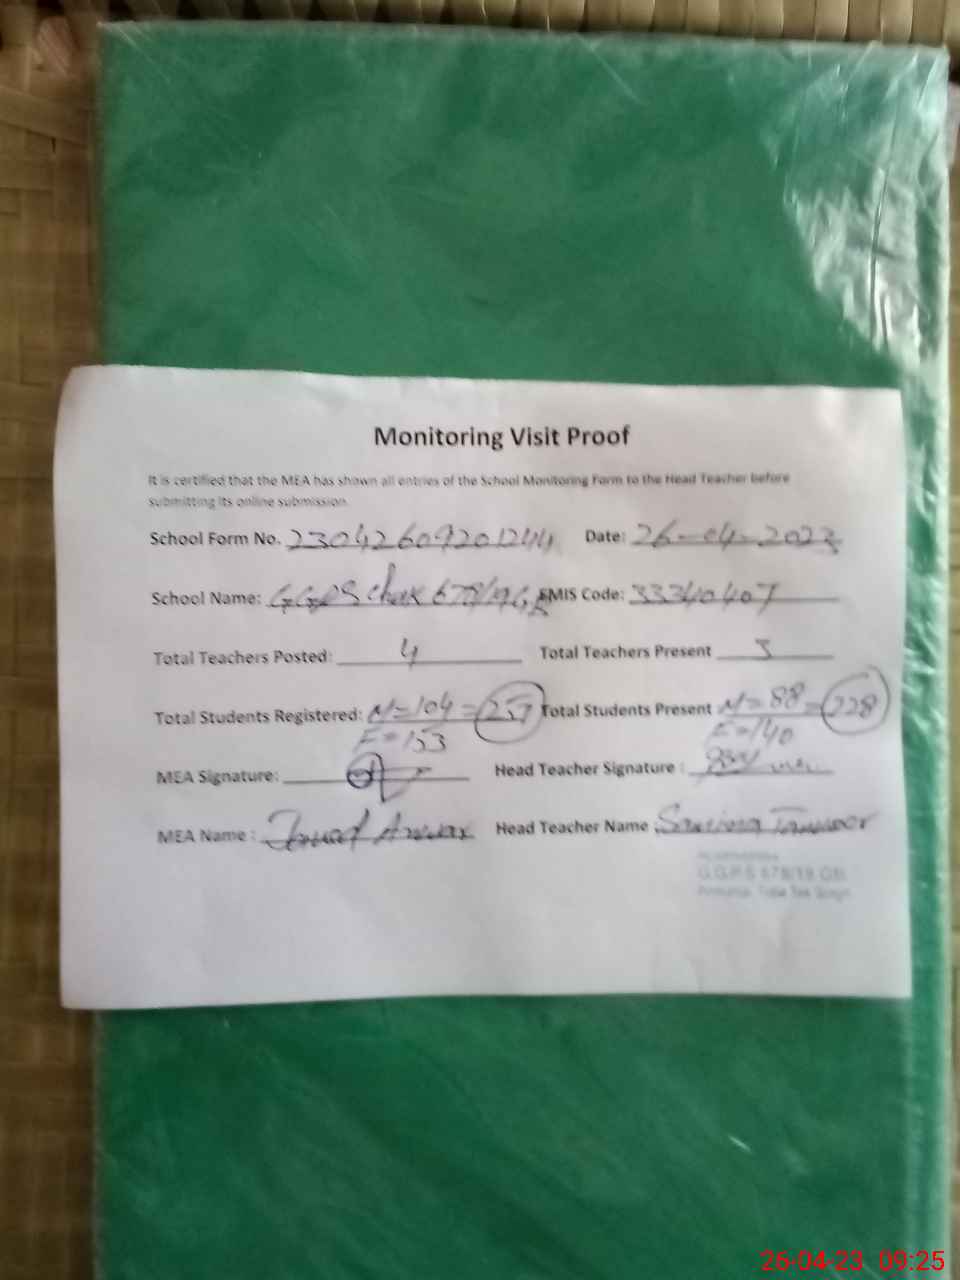 Monitoring Visit Proof
It is certified that the MEA has shown all entries of the School Monitoring Form to the Head Teacher before
submitting its online submission.
School Form No. 23042609201244 Date: 26-04-2023
School Name: GGPS Chak 678/19GB EMIS Code: 33340407
Total Teachers Posted: 4 Total Teachers Present 3
Total Students Registered: M=104 = 257 Total Students Present M=88 = 228
F=153 F=140
MEA Signature: Head Teacher Signature :
MEA Name : Anwar Head Teacher Name :
G.G.P.S 678/19 GB
Toba Tek Singh
26-04-23 09:25